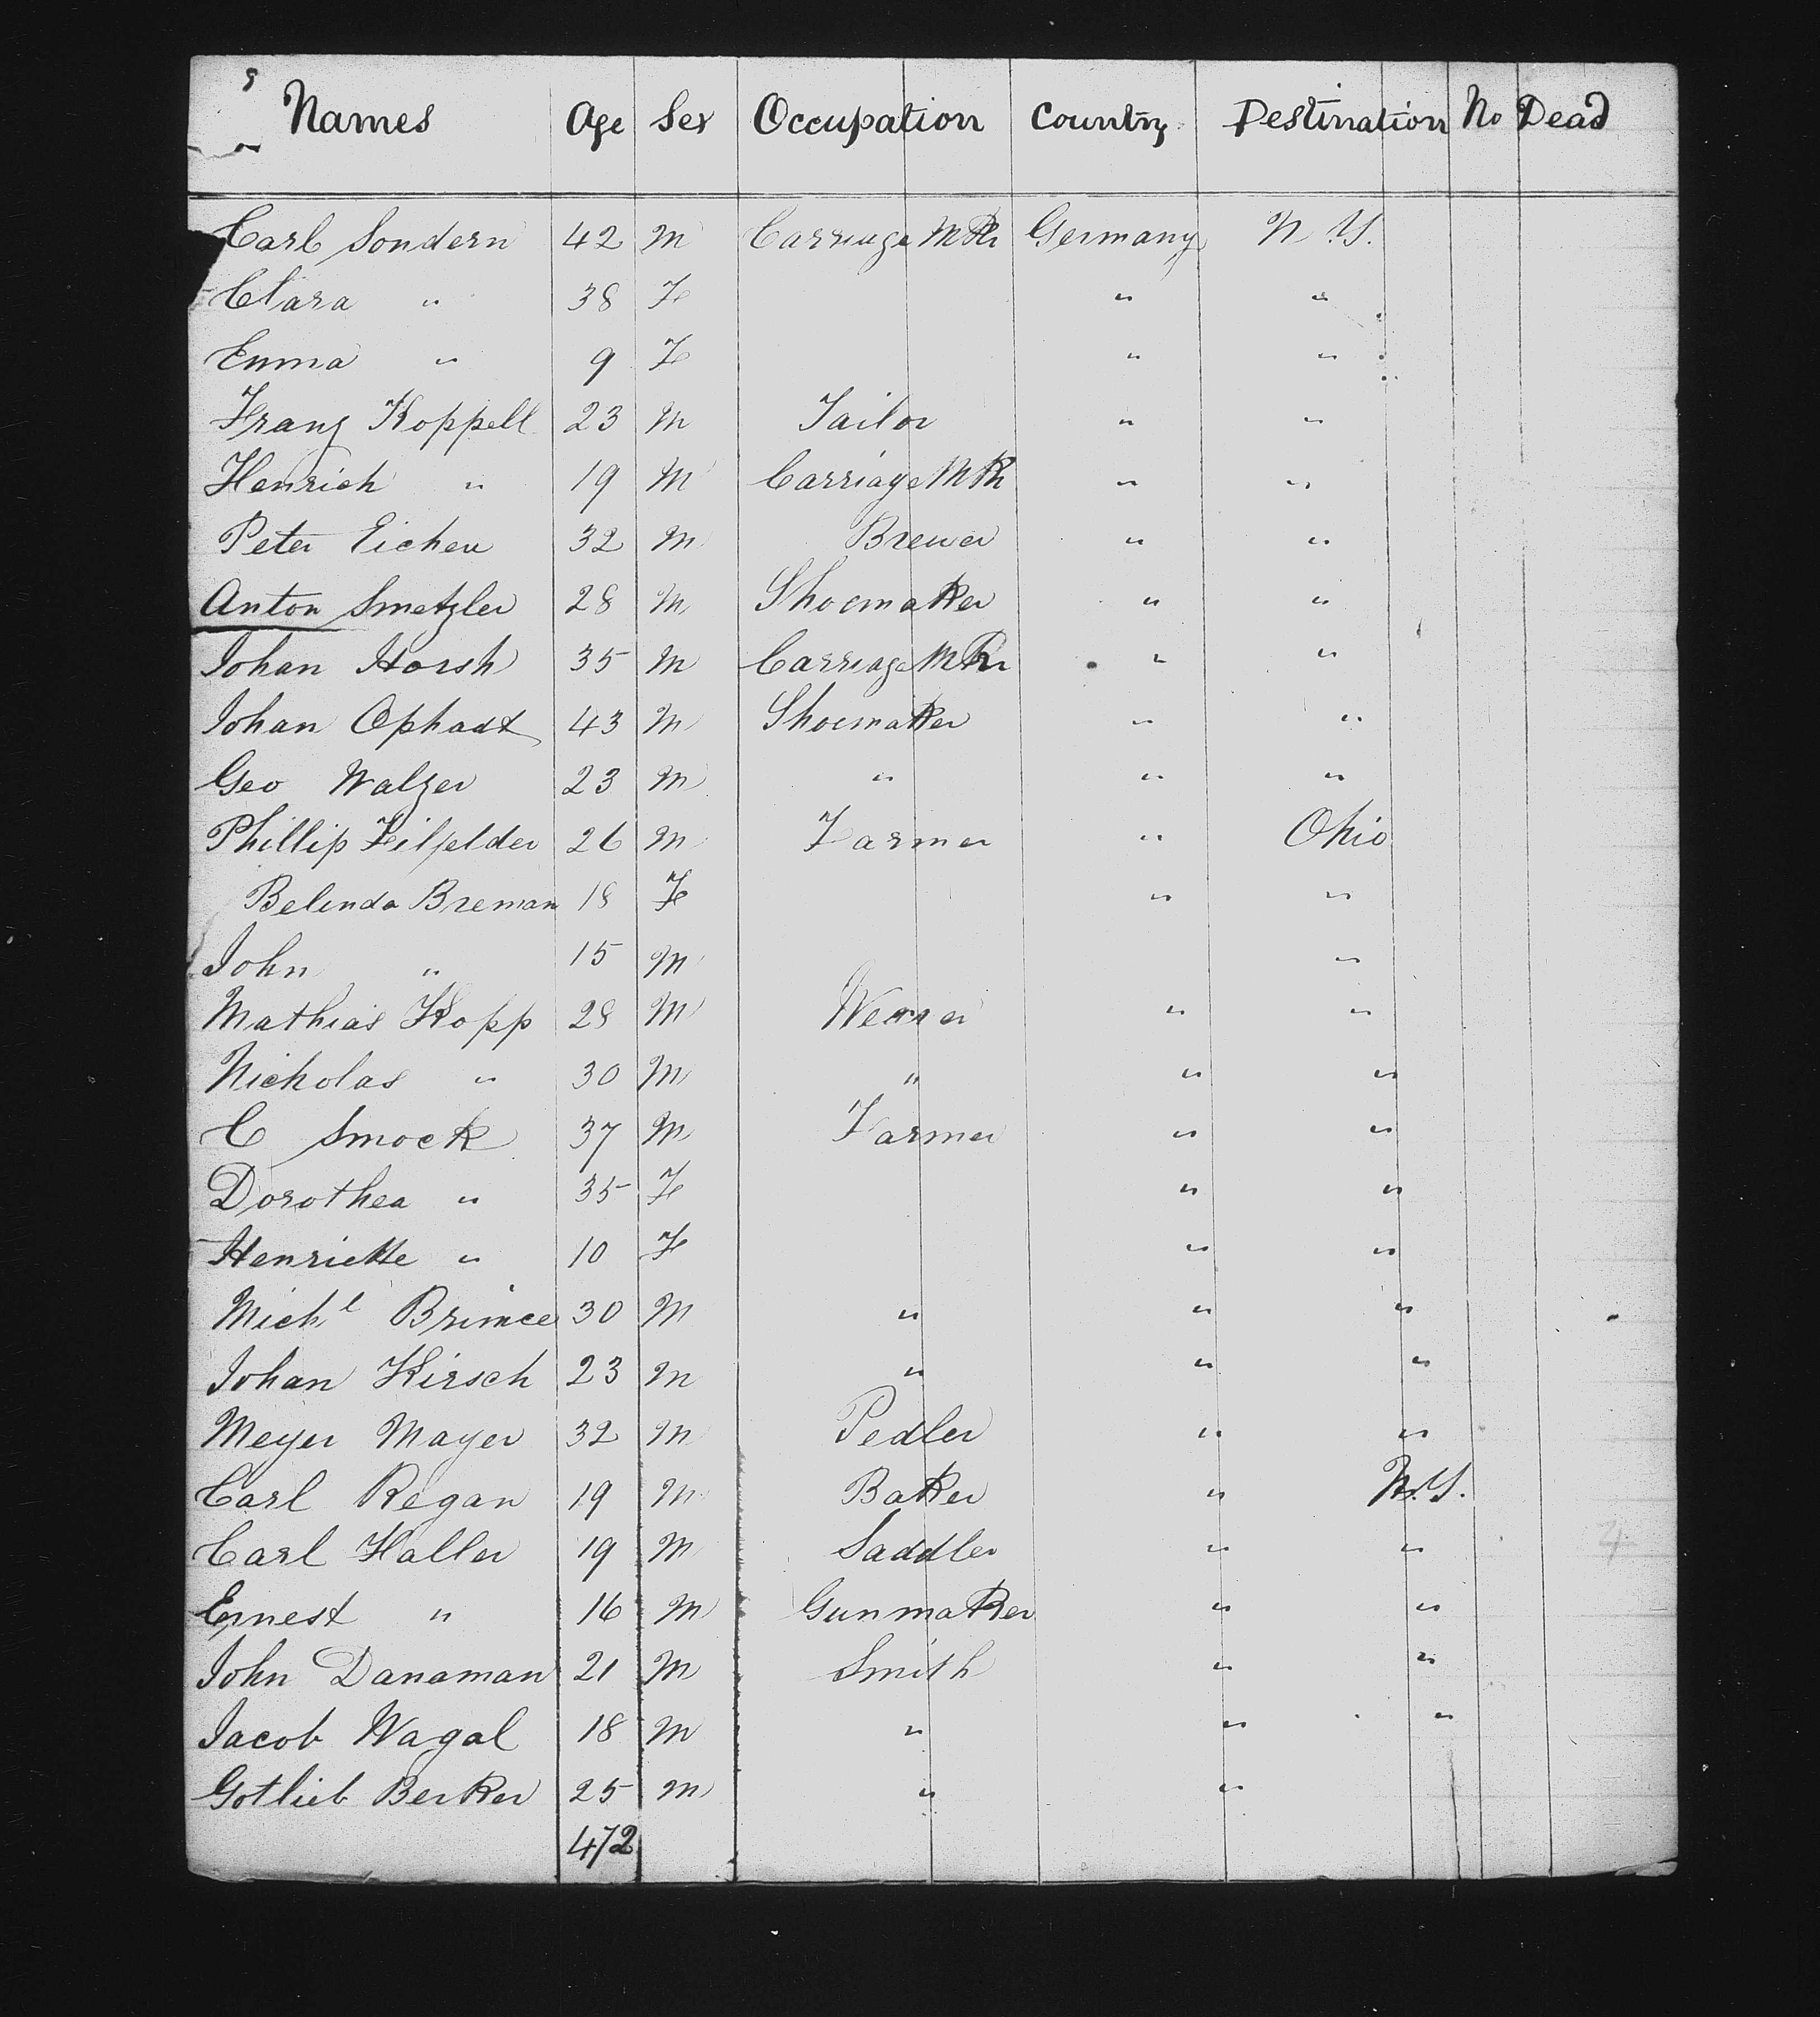 Names Age Sex Occupation Country Destination No Dead
Carl Sondern 42 M Carriage Mkr Germany N.Y.
Clara " 38 F " "
Emma " 9 F " "
Franz Koppell 23 M Tailor " "
Henrich " 19 M Carriage Mkr " "
Peter Eichen 32 M Brewer " "
Anton Smetzler 28 M Shoemaker " "
Johan Horsh 35 M Carriage Mkr " "
Johan Ophaat 43 M Shoemaker " "
Geo Walzer 23 M " " "
Phillip Feilfelder 26 M Farmer " Ohio
Belinda Breman 18 F " "
John " 15 M "
Mathias Kopp 28 M " "
Nicholas " 30 M " " "
C Smock 37 M Farmer " "
Dorothea " 35 F " "
Henriette " 10 F " "
Michl Brimce 30 M " " "
Johan Kirsch 23 M " " "
Meyer Mayer 32 M Pedler " "
Carl Regan 19 M Baker " N.Y.
Carl Haller 19 M Saddler " "
Ernest " 16 M Gunmaker " "
John Danaman 21 M Smith " "
Jacob Wagal 18 M " " "
Gotlieb Berker 25 M " "
472